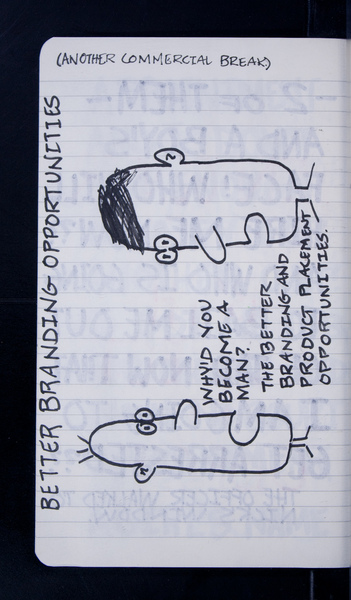 (ANOTHER COMMERCIAL BREAK)
BETTER BRANDING OPPORTUNITIES
WHY'D YOU
BECOME A
MAN?
THE BETTER
BRANDING AND
PRODUCT PLACEMENT
OPPORTUNITIES.